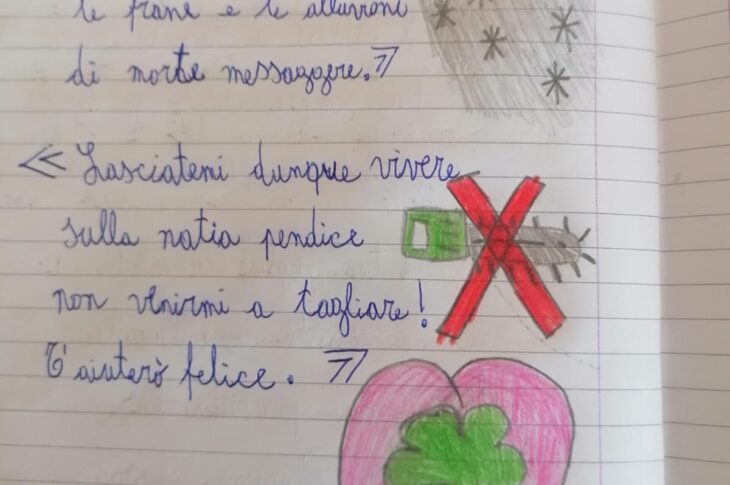 le frane e le alluvioni
di morte messaggere.»
«Lasciatemi dunque vivere
sulla natia pendice
non venirmi a tagliare!
T'aiuterò felice.»